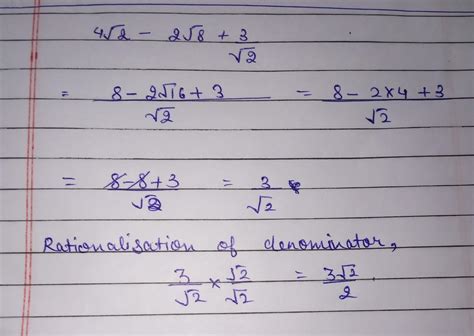 4√2 - 2√8 + 3/√2
= (8 - 2√16 + 3)/√2 = (8 - 2×4 + 3)/√2
= (8 - 8 + 3)/√2 = 3/√2
Rationalisation of denominator,
3/√2 × √2/√2 = 3√2/2